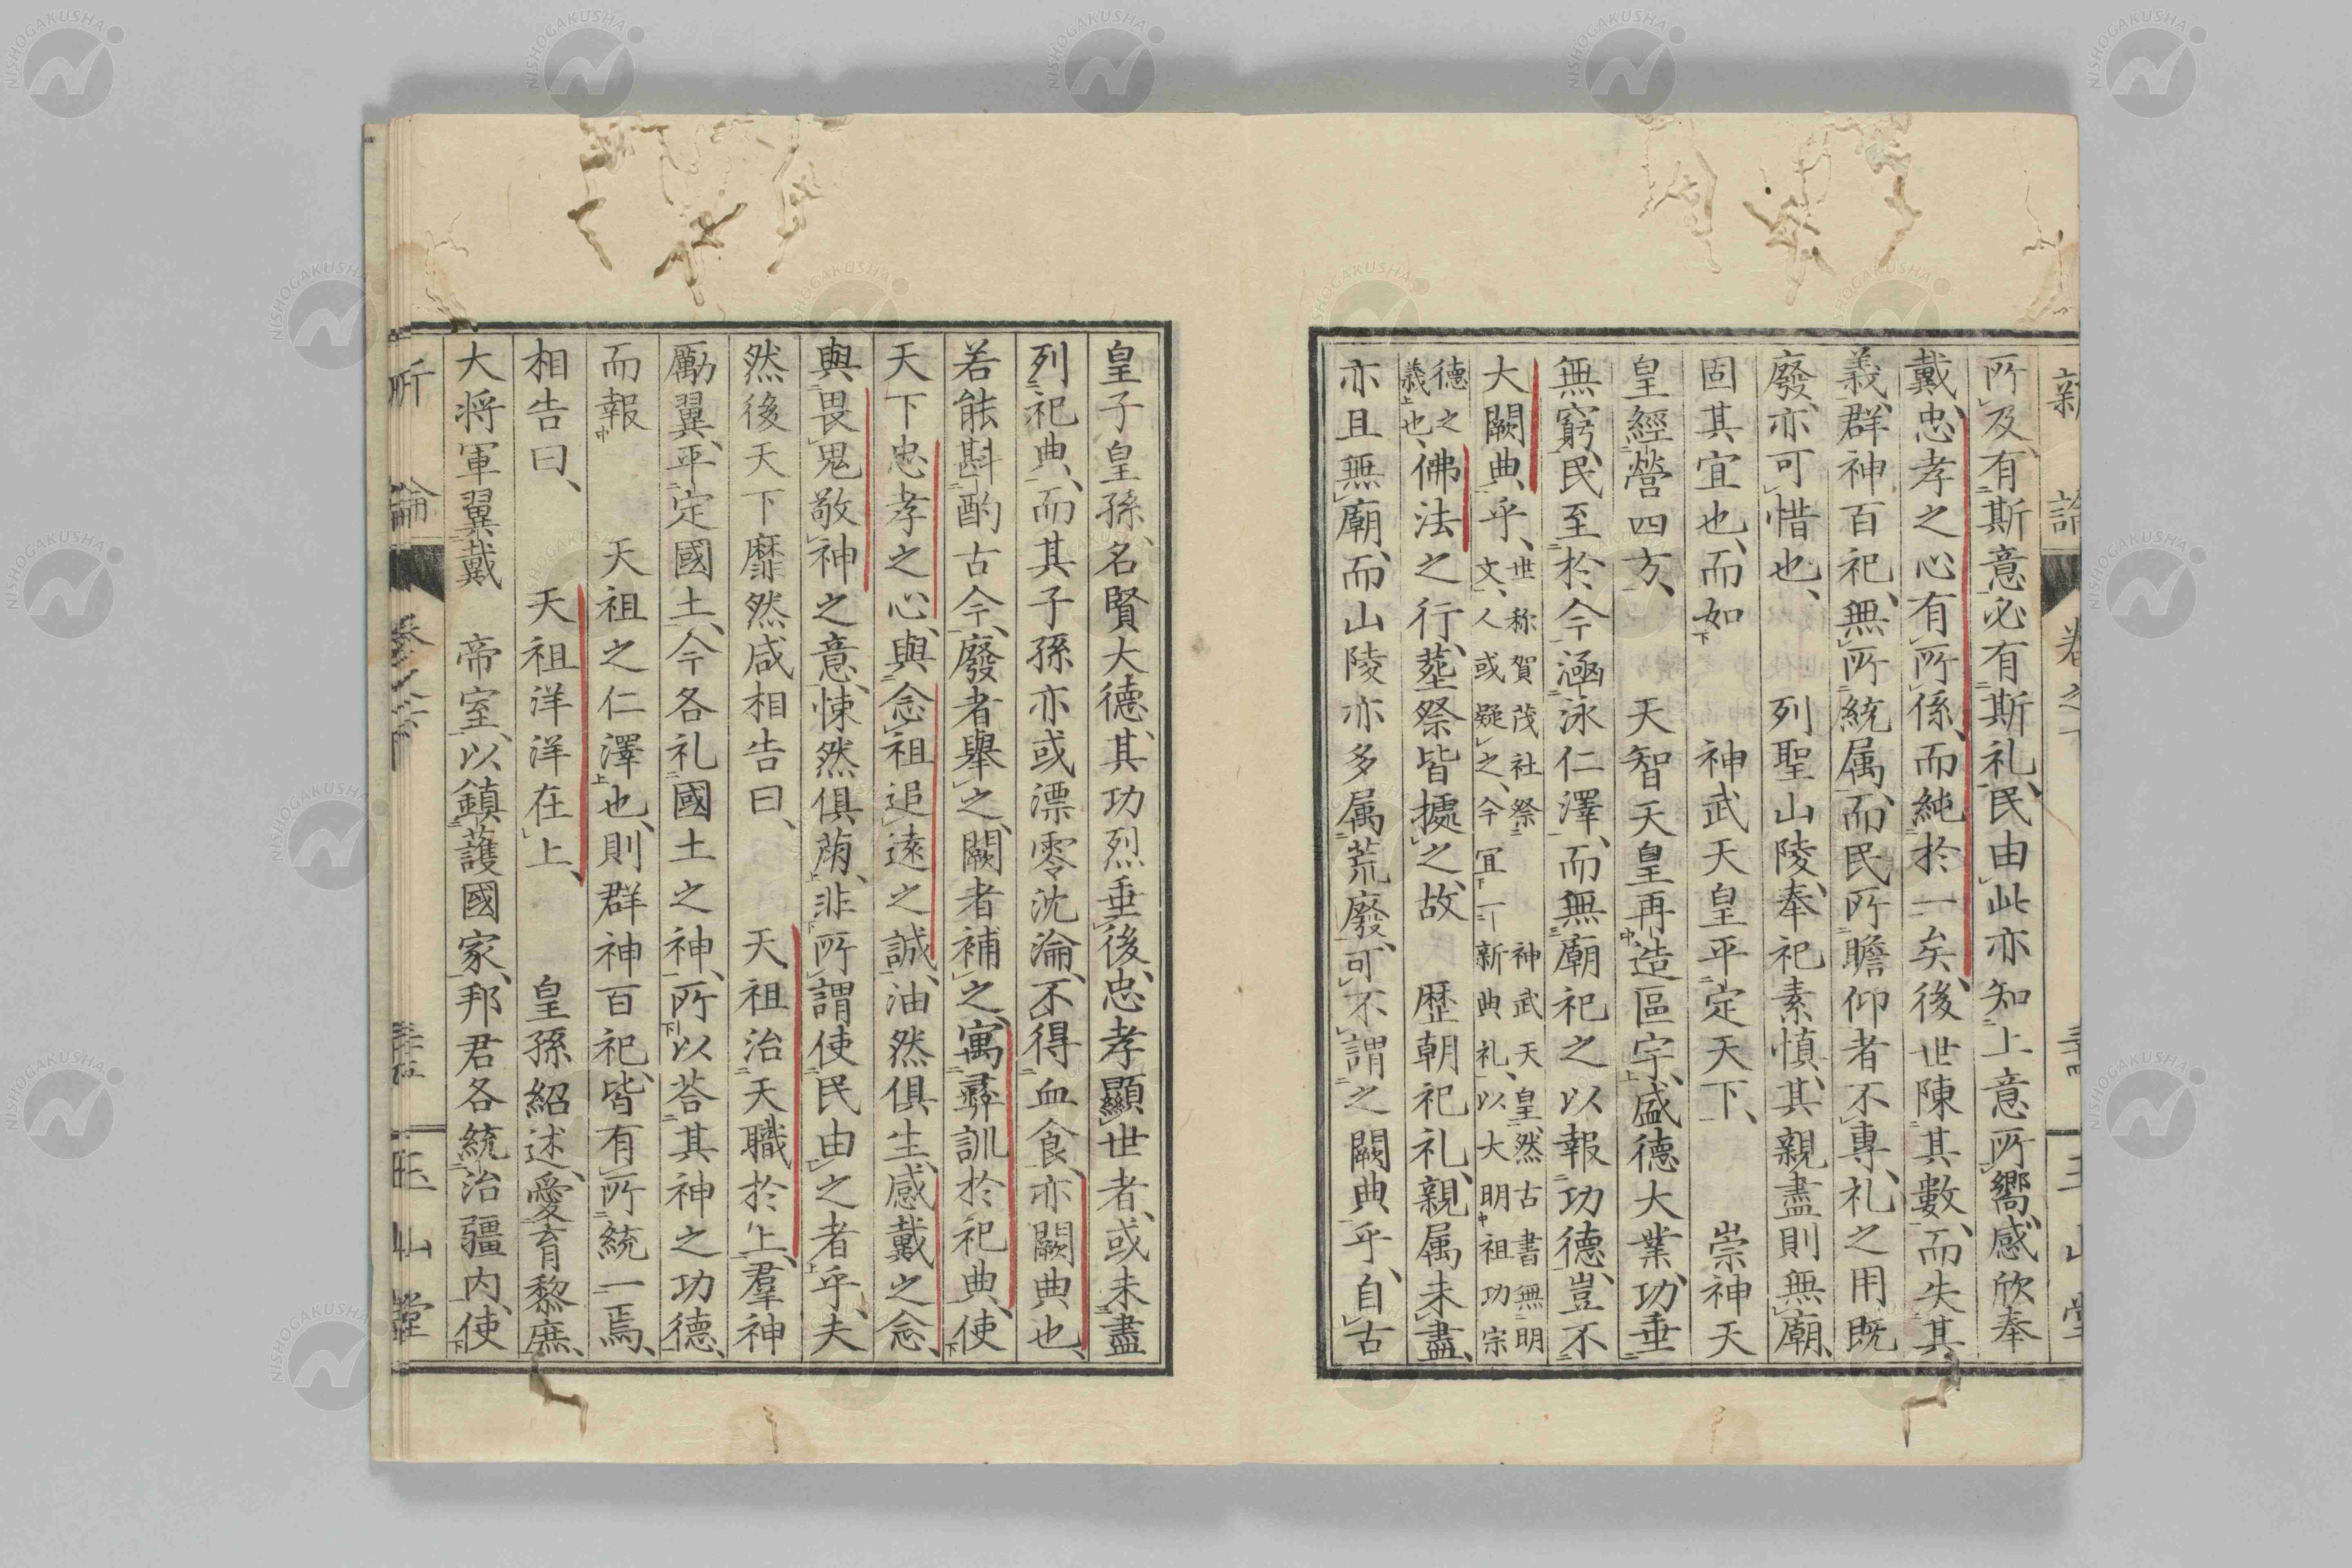 新論 卷之下
所及、有斯意必有斯礼、民由此亦知上意所嚮、感欣奉
戴、忠孝之心有所係、而純於一矣、後世陳其數、而失其
義、群神百祀、無所統属、而民所瞻仰者不專、礼之用既
廢、亦可惜也、列聖山陵、奉祀素慎、其親盡則無廟、
固其宜也、而如 神武天皇平定天下、 崇神天
皇經營四方、 天智天皇再造區宇、盛德大業、功垂
無窮、民至於今涵泳仁澤、而無廟祀之以報功德、豈不
大闕典乎、世称賀茂社祭 神武天皇、然古書無明
文、人或疑之、今宜一新典礼、以大明祖功宗
德之
義也、佛法之行、葬祭皆據之、故 歴朝祀礼、親属未盡、
亦且無廟、而山陵亦多属荒廢、可不謂之闕典乎、自古
皇子皇孫、名賢大德、其功烈垂後、忠孝顯世者、或未盡
列祀典、而其子孫亦或漂零沈淪、不得血食、亦闕典也、
若能斟酌古今、廢者舉之、闕者補之、寓彝訓於祀典、使
天下忠孝之心、與念祖追遠之誠、油然俱生、感戴之念、
與畏鬼敬神之意、悚然俱萠、非所謂使民由之者乎、夫
然後天下靡然咸相告曰、 天祖治天職於上、羣神
勵翼、平定國土、今各礼國土之神、所以荅其神之功德、
而報 天祖之仁澤也、則群神百祀、皆有所統一焉、
相告曰、 天祖洋洋在上、 皇孫紹述、愛育黎庶、
大将軍翼戴 帝室、以鎮護國家、邦君各統治疆内、使
論 卷之下 玉山堂